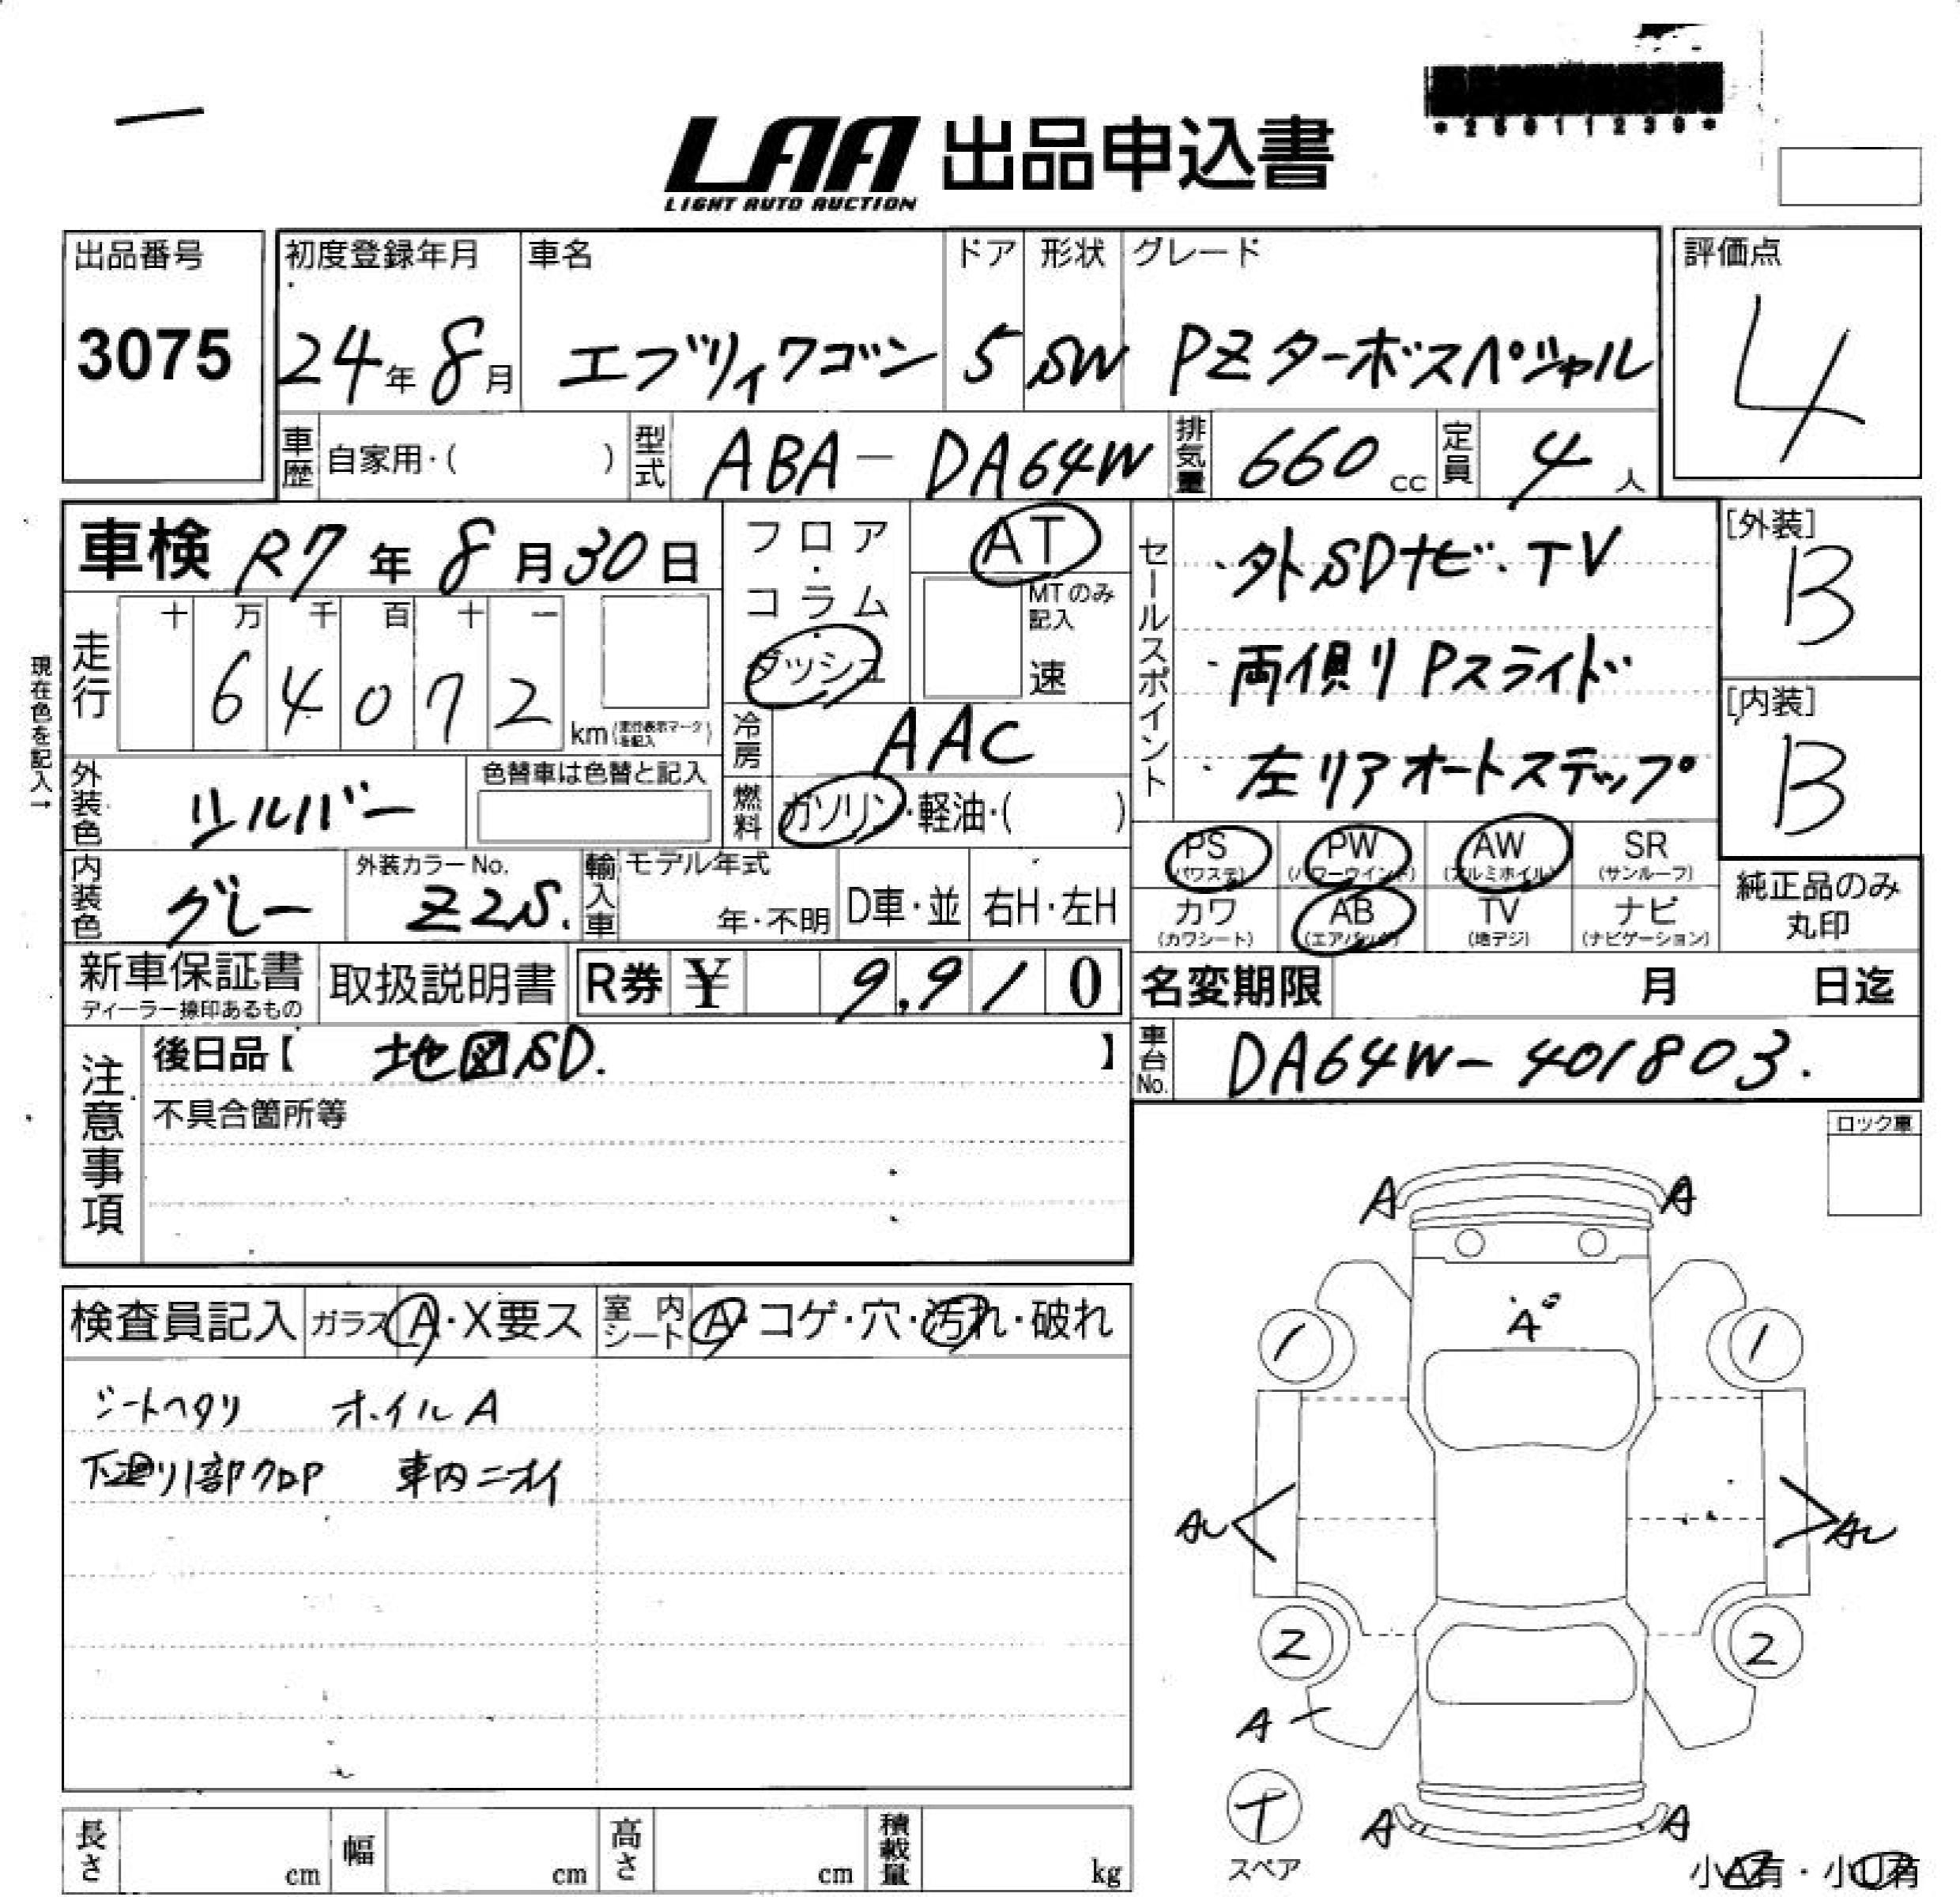 LAA 出品申込書
LIGHT AUTO AUCTION
*25011230*
出品番号
3075
初度登録年月
24年8月
車名
エブリィワゴン
ドア
5
形状
SW
グレード
PZターボスペシャル
評価点
4
車歴 自家用・( )
型式 ABA-DA64W
排気量 660cc
定員 4人
車検 R7年8月30日
フロア・コラム・ダッシュ
AT
MTのみ記入
速
セールスポイント
・外SDナビ・TV
・両側Pスライド
・左リアオートステップ
[外装]
B
[内装]
B
現在色を記入→
走行 十 万 千 百 十 一
64072
km(走行表示マークを記入)
冷房 AAC
燃料 ガソリン・軽油・( )
外装色 シルバー
色替車は色替と記入
内装色 グレー
外装カラーNo.
Z2S.
輸入車 モデル年式
年・不明
D車・並
右H・左H
PS (パワステ)
PW (パワーウインド)
AW (アルミホイル)
SR (サンルーフ)
カワ (カワシート)
AB (エアバッグ)
TV (地デジ)
ナビ (ナビゲーション)
純正品のみ丸印
新車保証書
ディーラー捺印あるもの
取扱説明書
R券 ¥ 9,910
名変期限 月 日迄
注意事項
後日品【 地図SD. 】
不具合箇所等
車台No. DA64W-401803.
ロック車
検査員記入
ガラス A・X要ス
室内シート A・コゲ・穴・汚れ・破れ
シートヘタリ ホイルA
下廻り1部クロP 車内ニオイ
A A
A
1 1
AU AU
2 2
A
T
スペア
A A
小A有・小U有
長さ cm
幅 cm
高さ cm
積載量 kg